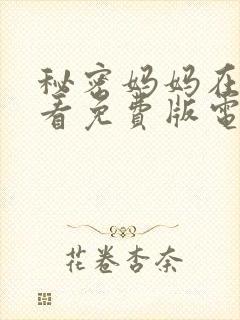 秘密妈妈在
看免費版電
花卷杏奈